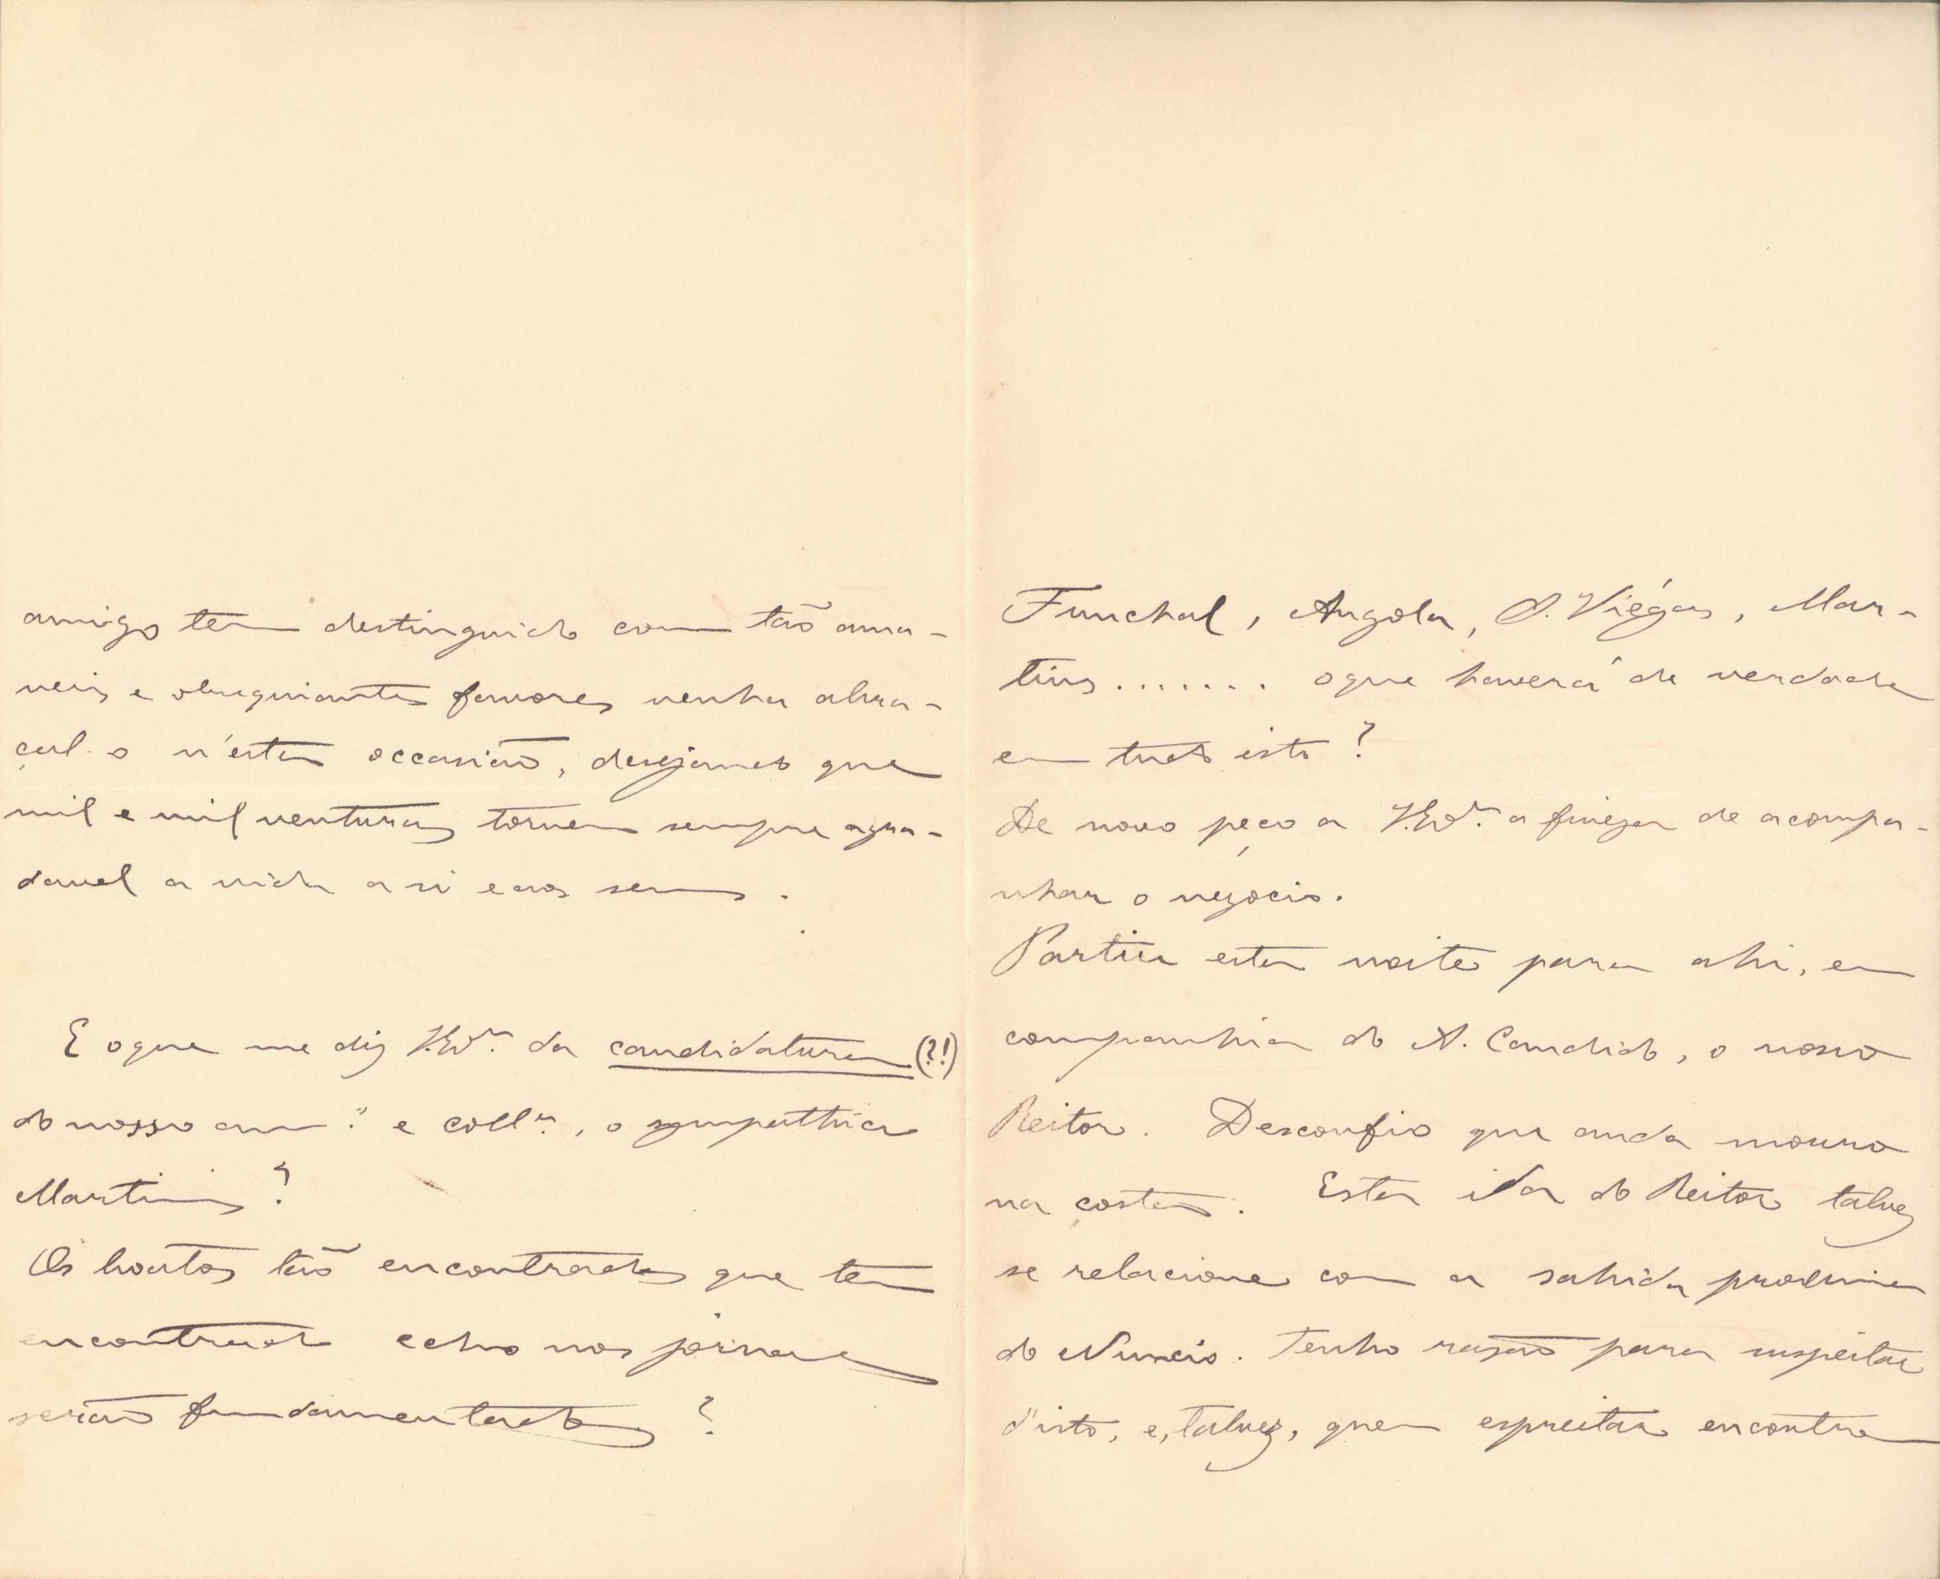 amigo tem destinguido com tão ama-
veis e obsequiantes favores venha abra-
çal-o n'esta occasião, desejando que
mil e mil venturas tornem sempre agra-
davel a vida a si e aos seus.
E o que me diz V. Ex.ª da candidatura (?!)
do nosso am.º e coll.ª, o sympathico
Martins?
Os boatos tão encontrados que tem
encontrado echo nos jornaes
serão fundamentados?
Funchal, Angola, S. Viégas, Mar-
tins....... o que haverá de verdade
em tudo isto?
De novo peço a V. Ex.ª a fineza de acompa-
nhar o negocio.
Partiu esta noite para ahi, em
companhia do A. Candido, o nosso
Reitor. Desconfio que anda mouro
na costa. Esta ida do Reitor talvez
se relacione com a sahida proxima
do Nuncio. Tenho rasão para suspeitar
d'isto, e, talvez, quem espreitar encontre